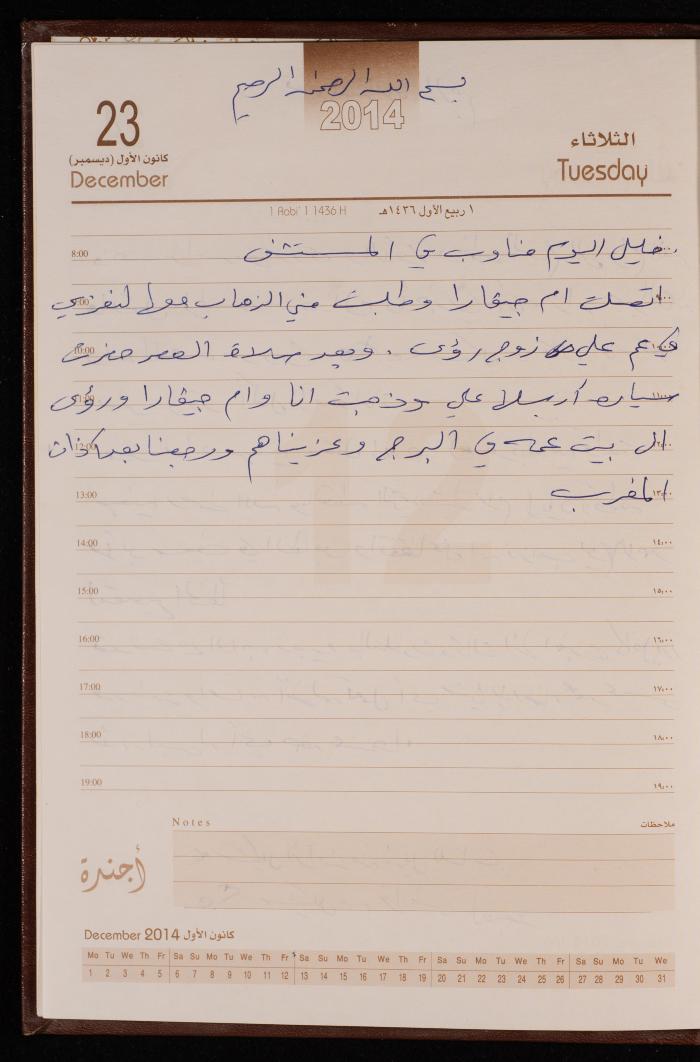 بسم الله الرحمن الرحيم
2014
23
كانون الأول (ديسمبر)
December
الثلاثاء
Tuesday
1 Rabi' I 1436 H
١ ربيع الأول ١٤٣٦هـ
8:00 خليل اليوم مناوب في المستشفى
9:00 اتصلت ام جيفارا وطلبت مني الذهاب معها لنعزي ٩:٠٠
10:00 في عم علي زوج رؤى . وبعد صلاة العصر حضرت ١٠:٠٠
11:00 سياره أرسلها علي وذهبت انا وام جيفارا ورؤى ١١:٠٠
12:00 الى بيت عمه في البرج وعزيناهم ورجعنا بعد اذان ١٢:٠٠
13:00 المغرب ١٣:٠٠
14:00 ١٤:٠٠
15:00 ١٥:٠٠
16:00 ١٦:٠٠
17:00 ١٧:٠٠
18:00 ١٨:٠٠
19:00 ١٩:٠٠
Notes ملاحظات
أجندة
December 2014 كانون الأول
Mo Tu We Th Fr Sa Su Mo Tu We Th Fr Sa Su Mo Tu We Th Fr Sa Su Mo Tu We Th Fr Sa Su Mo Tu We
1 2 3 4 5 6 7 8 9 10 11 12 13 14 15 16 17 18 19 20 21 22 23 24 25 26 27 28 29 30 31